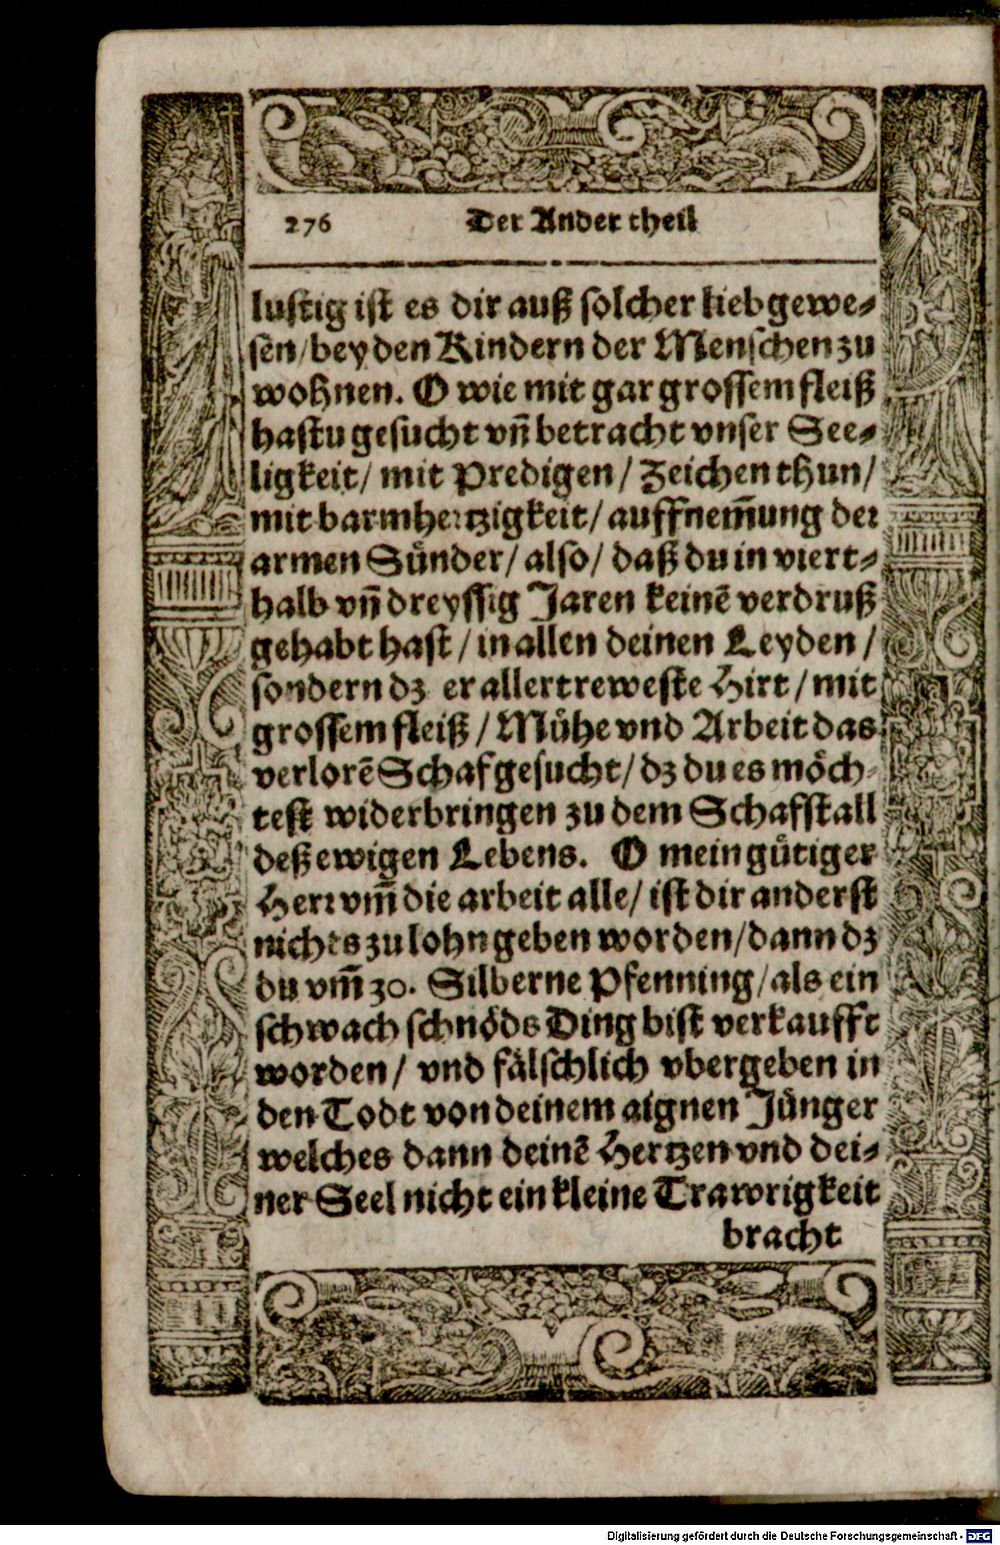 276 Der Ander theil
lustig ist es dir auß solcher lieb gewe⸗
sen/bey den Kindern der Menschen zu
wohnen. O wie mit gar grossem fleiß
hastu gesucht vñ betracht vnser See⸗
ligkeit/ mit Predigen/ Zeichen thun/
mit barmhertzigkeit/ auffnem̃ung der
armen Sünder/ also/ daß du in viert⸗
halb vñ dreyssig Jaren keinē verdruß
gehabt hast/ in allen deinen Leyden/
sondern dz er allertreweste Hirt/ mit
grossem fleiß/ Mühe vnd Arbeit das
verlorē Schaf gesucht/ dz du es möch⸗
test widerbringen zu dem Schafstall
deß ewigen Lebens. O mein gütiger
Herr vm̃ die arbeit alle/ ist dir anderst
nichts zu lohn geben worden/dann dz
du vm̃ 30. Silberne Pfenning/als ein
schwach schnöds Ding bist verkaufft
worden/ vnd fälschlich vbergeben in
den Todt von deinem aignen Jünger
welches dann deinē Hertzen vnd dei⸗
ner Seel nicht ein kleine Trawrigkeit
bracht
Digitalisierung gefördert durch die Deutsche Forschungsgemeinschaft - DFG